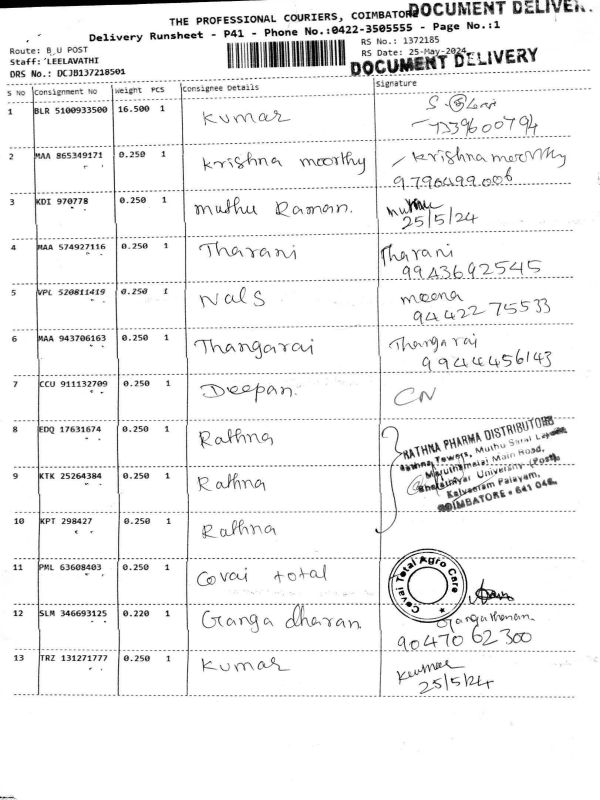 DOCUMENT DELIVER
THE PROFESSIONAL COURIERS, COIMBATORE
Delivery Runsheet - P41 - Phone No.:0422-3505555 - Page No.:1
Route: B U POST
RS No.: 1372185
Staff: LEELAVATHI
RS Date: 25-May-2024
DRS No.: DCJB137218501
DOCUMENT DELIVERY
S No Consignment No Weight PCS Consignee Details Signature
1 BLR 5100933500 16.500 1 Kumar
7339600794
2 MAA 865349171 0.250 1 Krishna moorthy Krishna moorthy
9.790499.006
3 KDI 970778 0.250 1 Muthu Raman.
25/5/24
4 MAA 574927116 0.250 1 Tharani Tharani
9943692545
5 VPL 520811419 0.250 1 Nals meena
94422 75533
6 MAA 943706163 0.250 1 Thangarai Thangarai
9944456143
7 CCU 911132709 0.250 1 Deepan. CN
8 EDQ 17631674 0.250 1 Rathna
RATHNA PHARMA DISTRIBUTORS
Rathna Towers, Muthu Sarai Layout
Maruthamalai Main Road,
Bharathiyar University (Post)
Kalveeram Palayam,
COIMBATORE - 641 046.
9 KTK 25264384 0.250 1 Rathna
10 KPT 298427 0.250 1 Rathna
11 PML 63608403 0.250 1 Covai total
Covai Total Agro Care
12 SLM 346693125 0.220 1 Ganga dharan
90470 62300
13 TRZ 131271777 0.250 1 Kumar Kumar
25/5/24